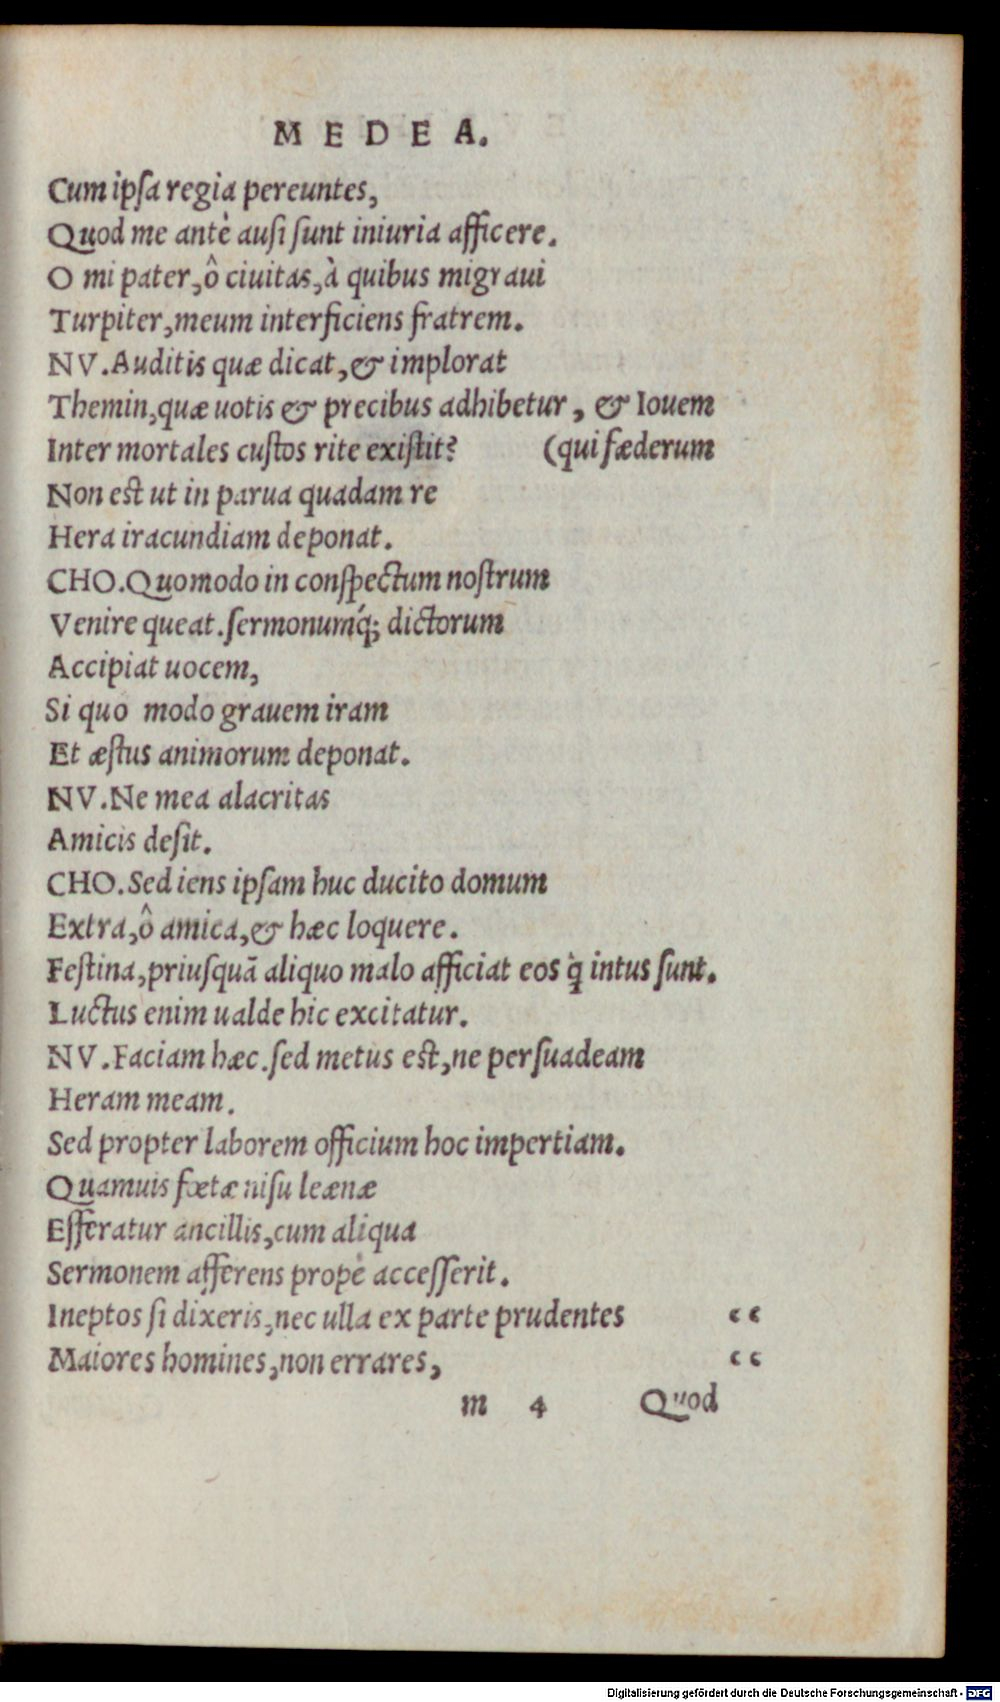 MEDEA.
Cum ipſa regia pereuntes,
Quod me antè auſi ſunt iniuria afficere.
O mi pater, ô ciuitas, à quibus migraui
Turpiter, meum interficiens fratrem.
NV. Auditis quæ dicat, & implorat
Themin, quæ uotis & precibus adhibetur, & Iouem
Inter mortales cuſtos rite exiſtit? (qui fæderum
Non eſt ut in parua quadam re
Hera iracundiam deponat.
CHO. Quomodo in conſpectum noſtrum
Venire queat. ſermonumq́; dictorum
Accipiat uocem,
Si quo modo grauem iram
Et æſtus animorum deponat.
NV. Ne mea alacritas
Amicis deſit.
CHO. Sed iens ipſam huc ducito domum
Extra, ô amica, & hæc loquere.
Feſtina, priuſquā aliquo malo afficiat eos q̀ intus ſunt.
Luctus enim ualde hic excitatur.
NV. Faciam hæc. ſed metus eſt, ne perſuadeam
Heram meam.
Sed propter laborem officium hoc impertiam.
Quamuis fœtæ niſu leænæ
Efferatur ancillis, cum aliqua
Sermonem afferens propè acceſſerit.
Ineptos ſi dixeris, nec ulla ex parte prudentes “
Maiores homines, non errares, “
m 4 Quod
Digitalisierung gefördert durch die Deutsche Forschungsgemeinschaft - DFG